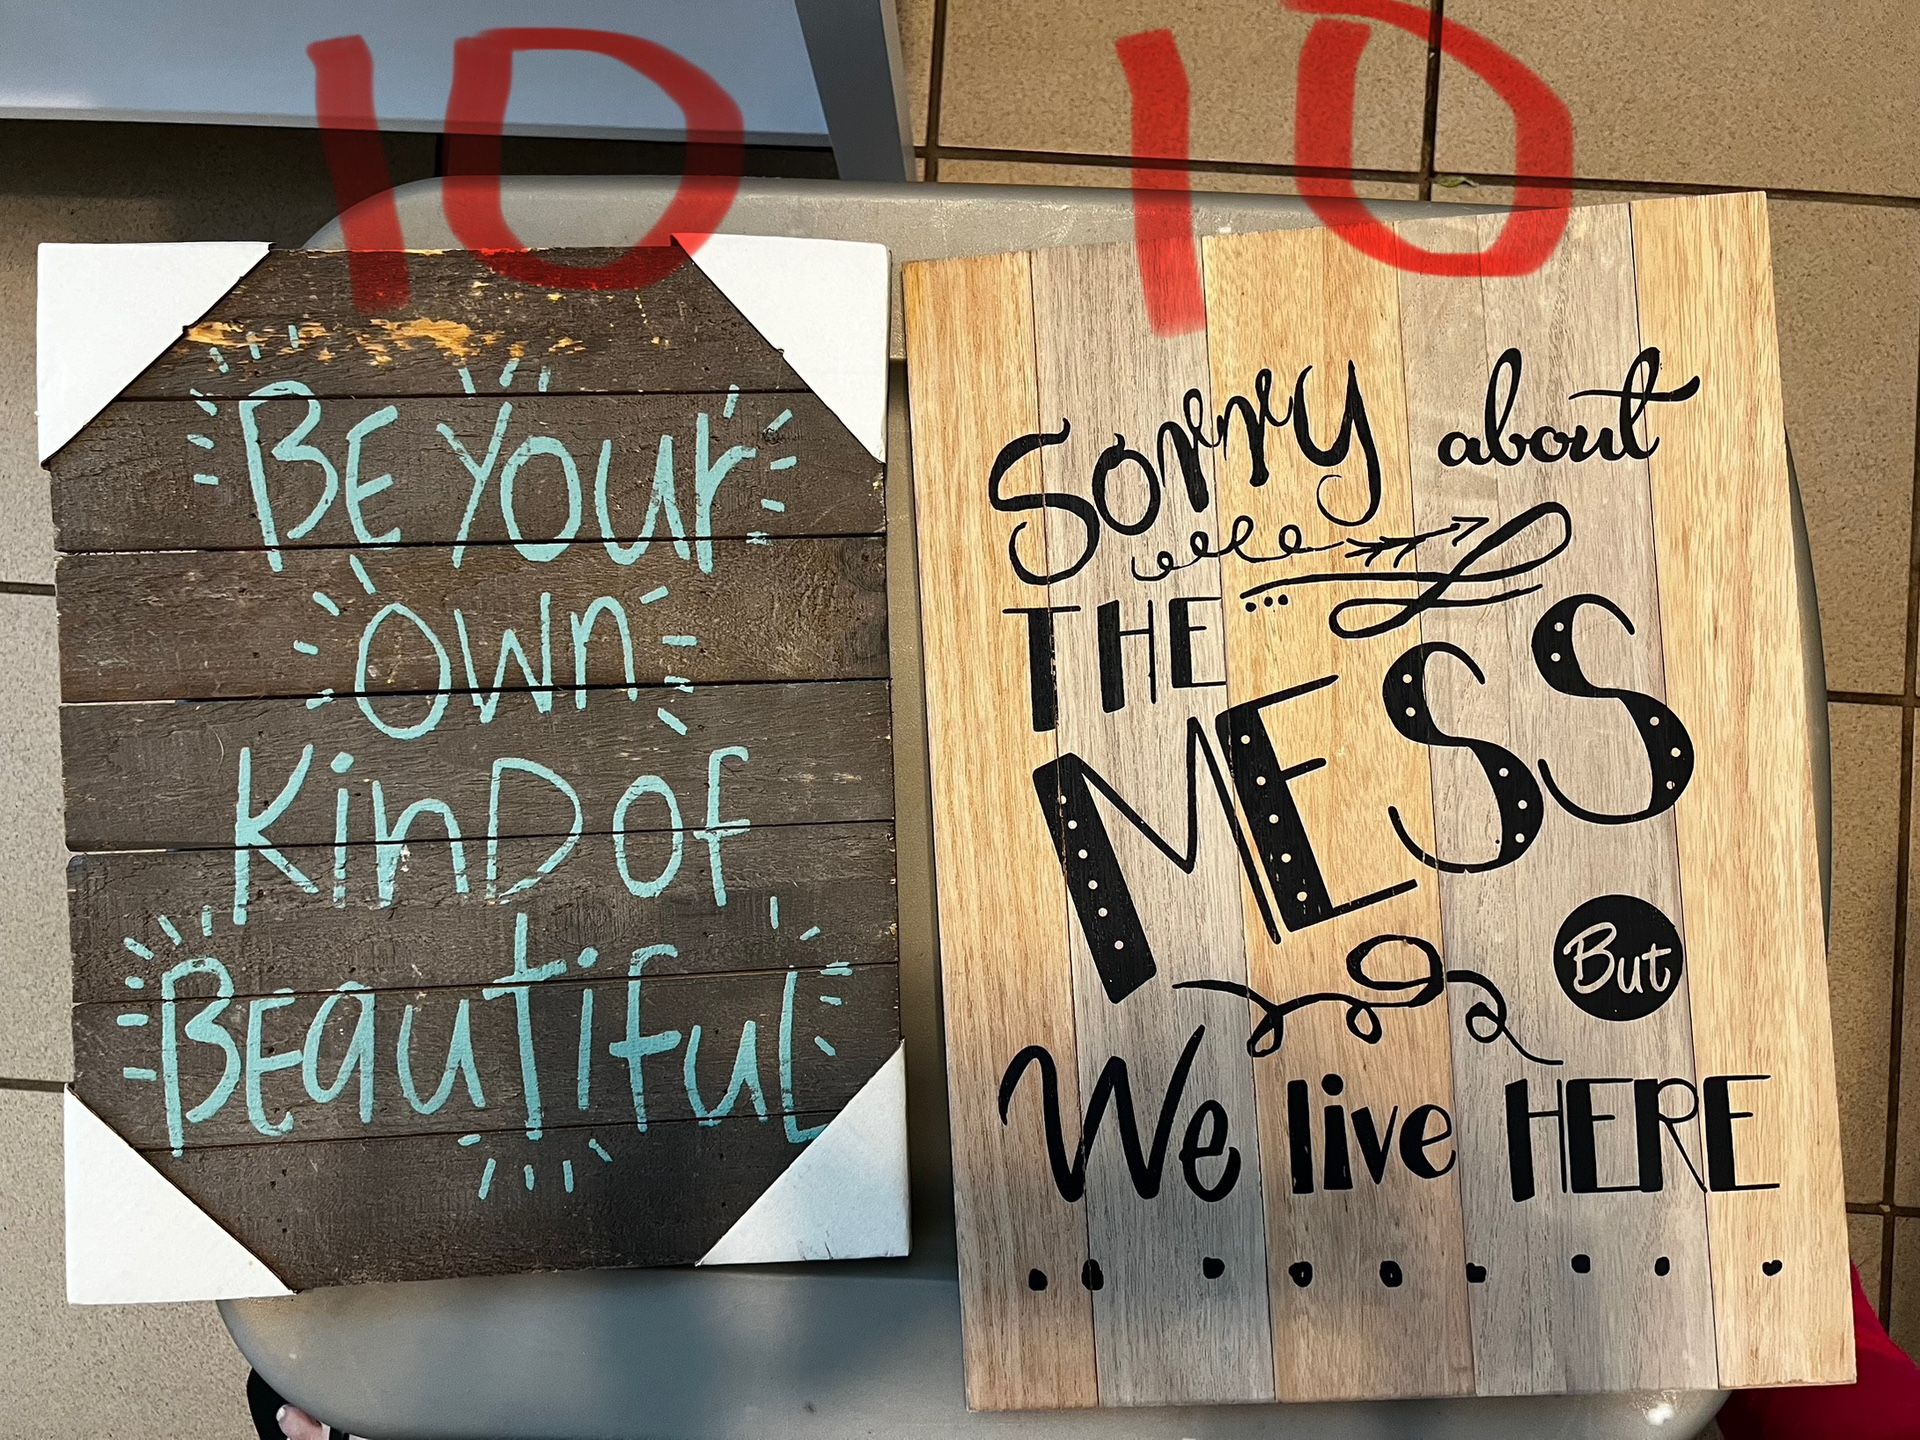 10
10
BE Your
Own
KinD of
BEautiful
Sorry about
THE
MESS
But
We live HERE